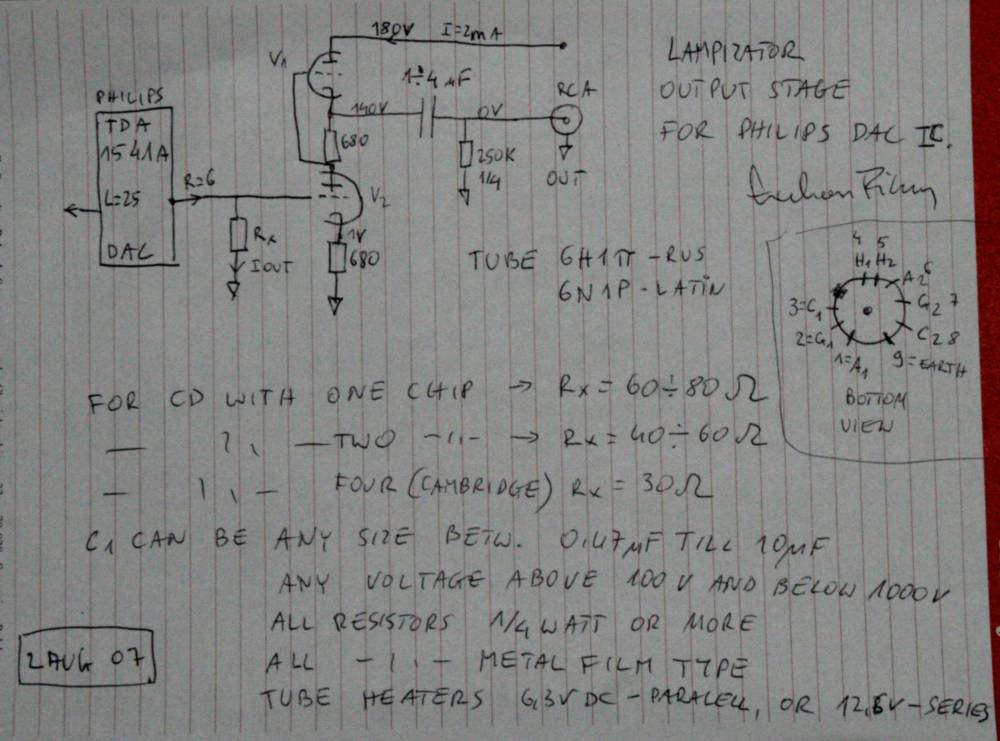 180V I=2mA
V1
1÷4 µF
RCA
LAMPIZATOR
OUTPUT STAGE
FOR PHILIPS DAC IC.
PHILIPS
TDA
1541A
L=25
DAC
R=6
RX
IOUT
140V
0V
680
250K
1/4
OUT
V2
1V
680
TUBE 6Н1П -RUS
6N1P-LATIN
4 5
H1 H2
A2 6
G2 7
C2 8
9=EARTH
1=A1
2=G1
3=C1
BOTTOM
VIEW
FOR CD WITH ONE CHIP → RX = 60÷80 Ω
— " — TWO -"- → RX = 40÷60 Ω
— " — FOUR (CAMBRIDGE) RX = 30Ω
C1 CAN BE ANY SIZE BETW. 0,47µF TILL 10µF
ANY VOLTAGE ABOVE 100V AND BELOW 1000V
ALL RESISTORS 1/4 WATT OR MORE
ALL -"- METAL FILM TYPE
TUBE HEATERS 6,3V DC-PARALELL, OR 12,6V-SERIES
2AUG 07